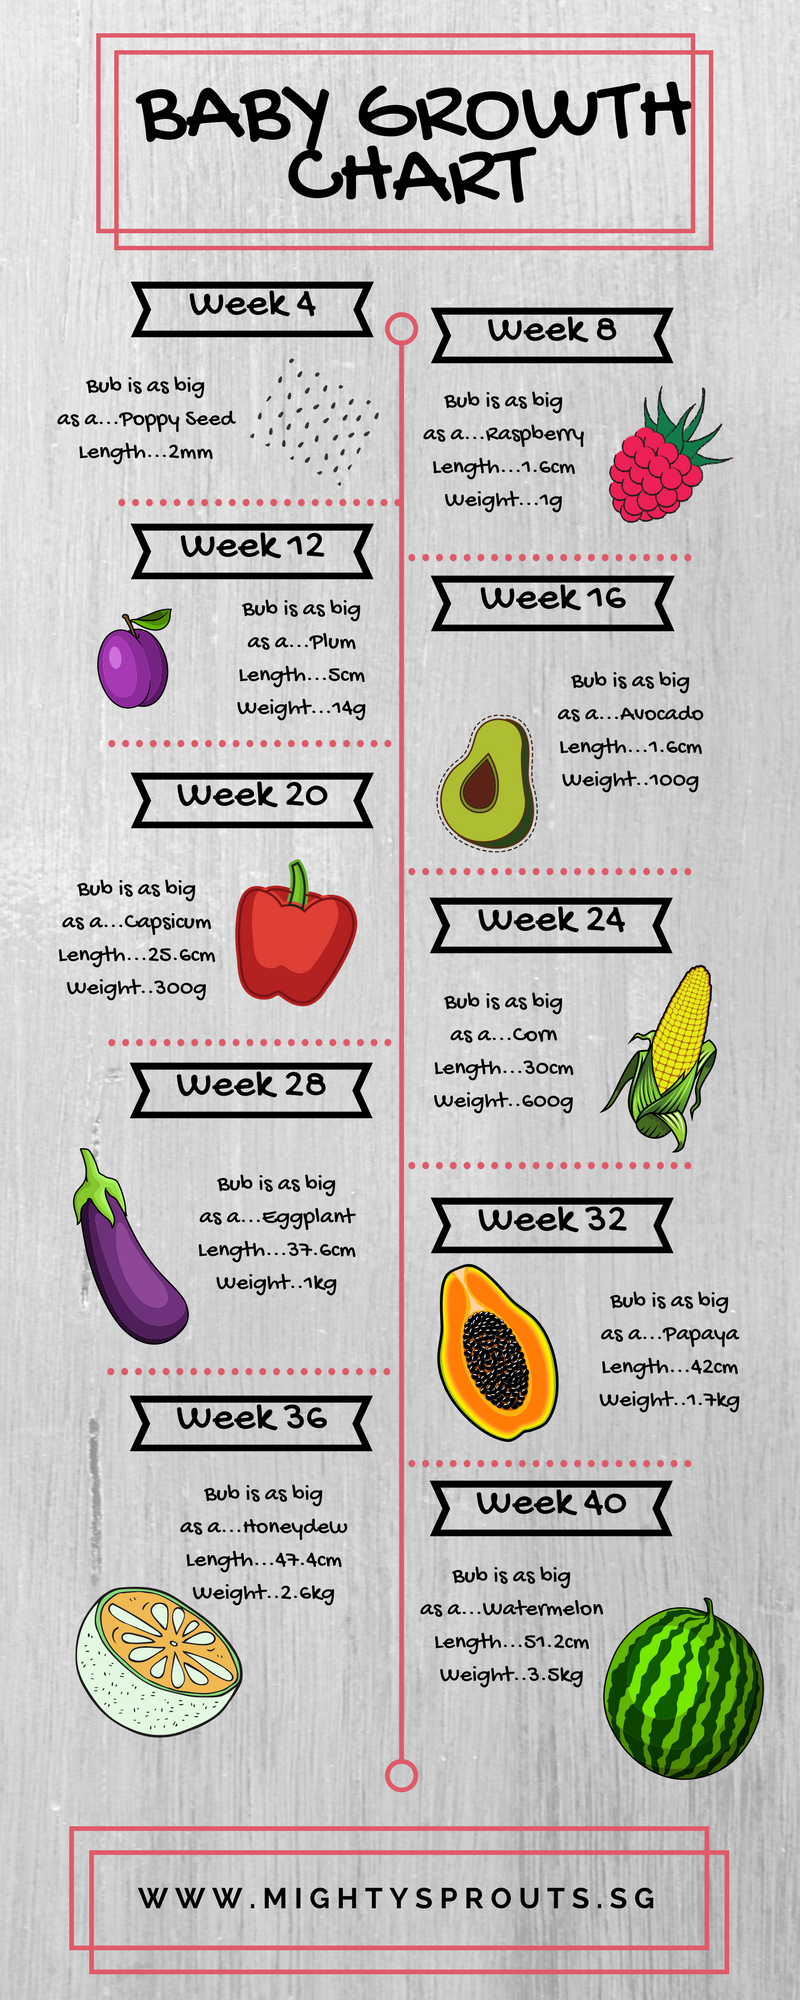 BABY GROWTH
CHART
Week 4
Bub is as big
as a...Poppy Seed
Length...2mm
Week 8
Bub is as big
as a...Raspberry
Length...1.6cm
Weight...1g
Week 12
Bub is as big
as a...Plum
Length...5cm
Weight...14g
Week 16
Bub is as big
as a...Avocado
Length...1.6cm
Weight..100g
Week 20
Bub is as big
as a...Capsicum
Length...25.6cm
Weight..300g
Week 24
Bub is as big
as a...Corn
Length...30cm
Weight..600g
Week 28
Bub is as big
as a...Eggplant
Length...37.6cm
Weight..1kg
Week 32
Bub is as big
as a...Papaya
Length...42cm
Weight..1.7kg
Week 36
Bub is as big
as a...Honeydew
Length...47.4cm
Weight..2.6kg
Week 40
Bub is as big
as a...Watermelon
Length...51.2cm
Weight..3.5kg
WWW.MIGHTYSPROUTS.SG